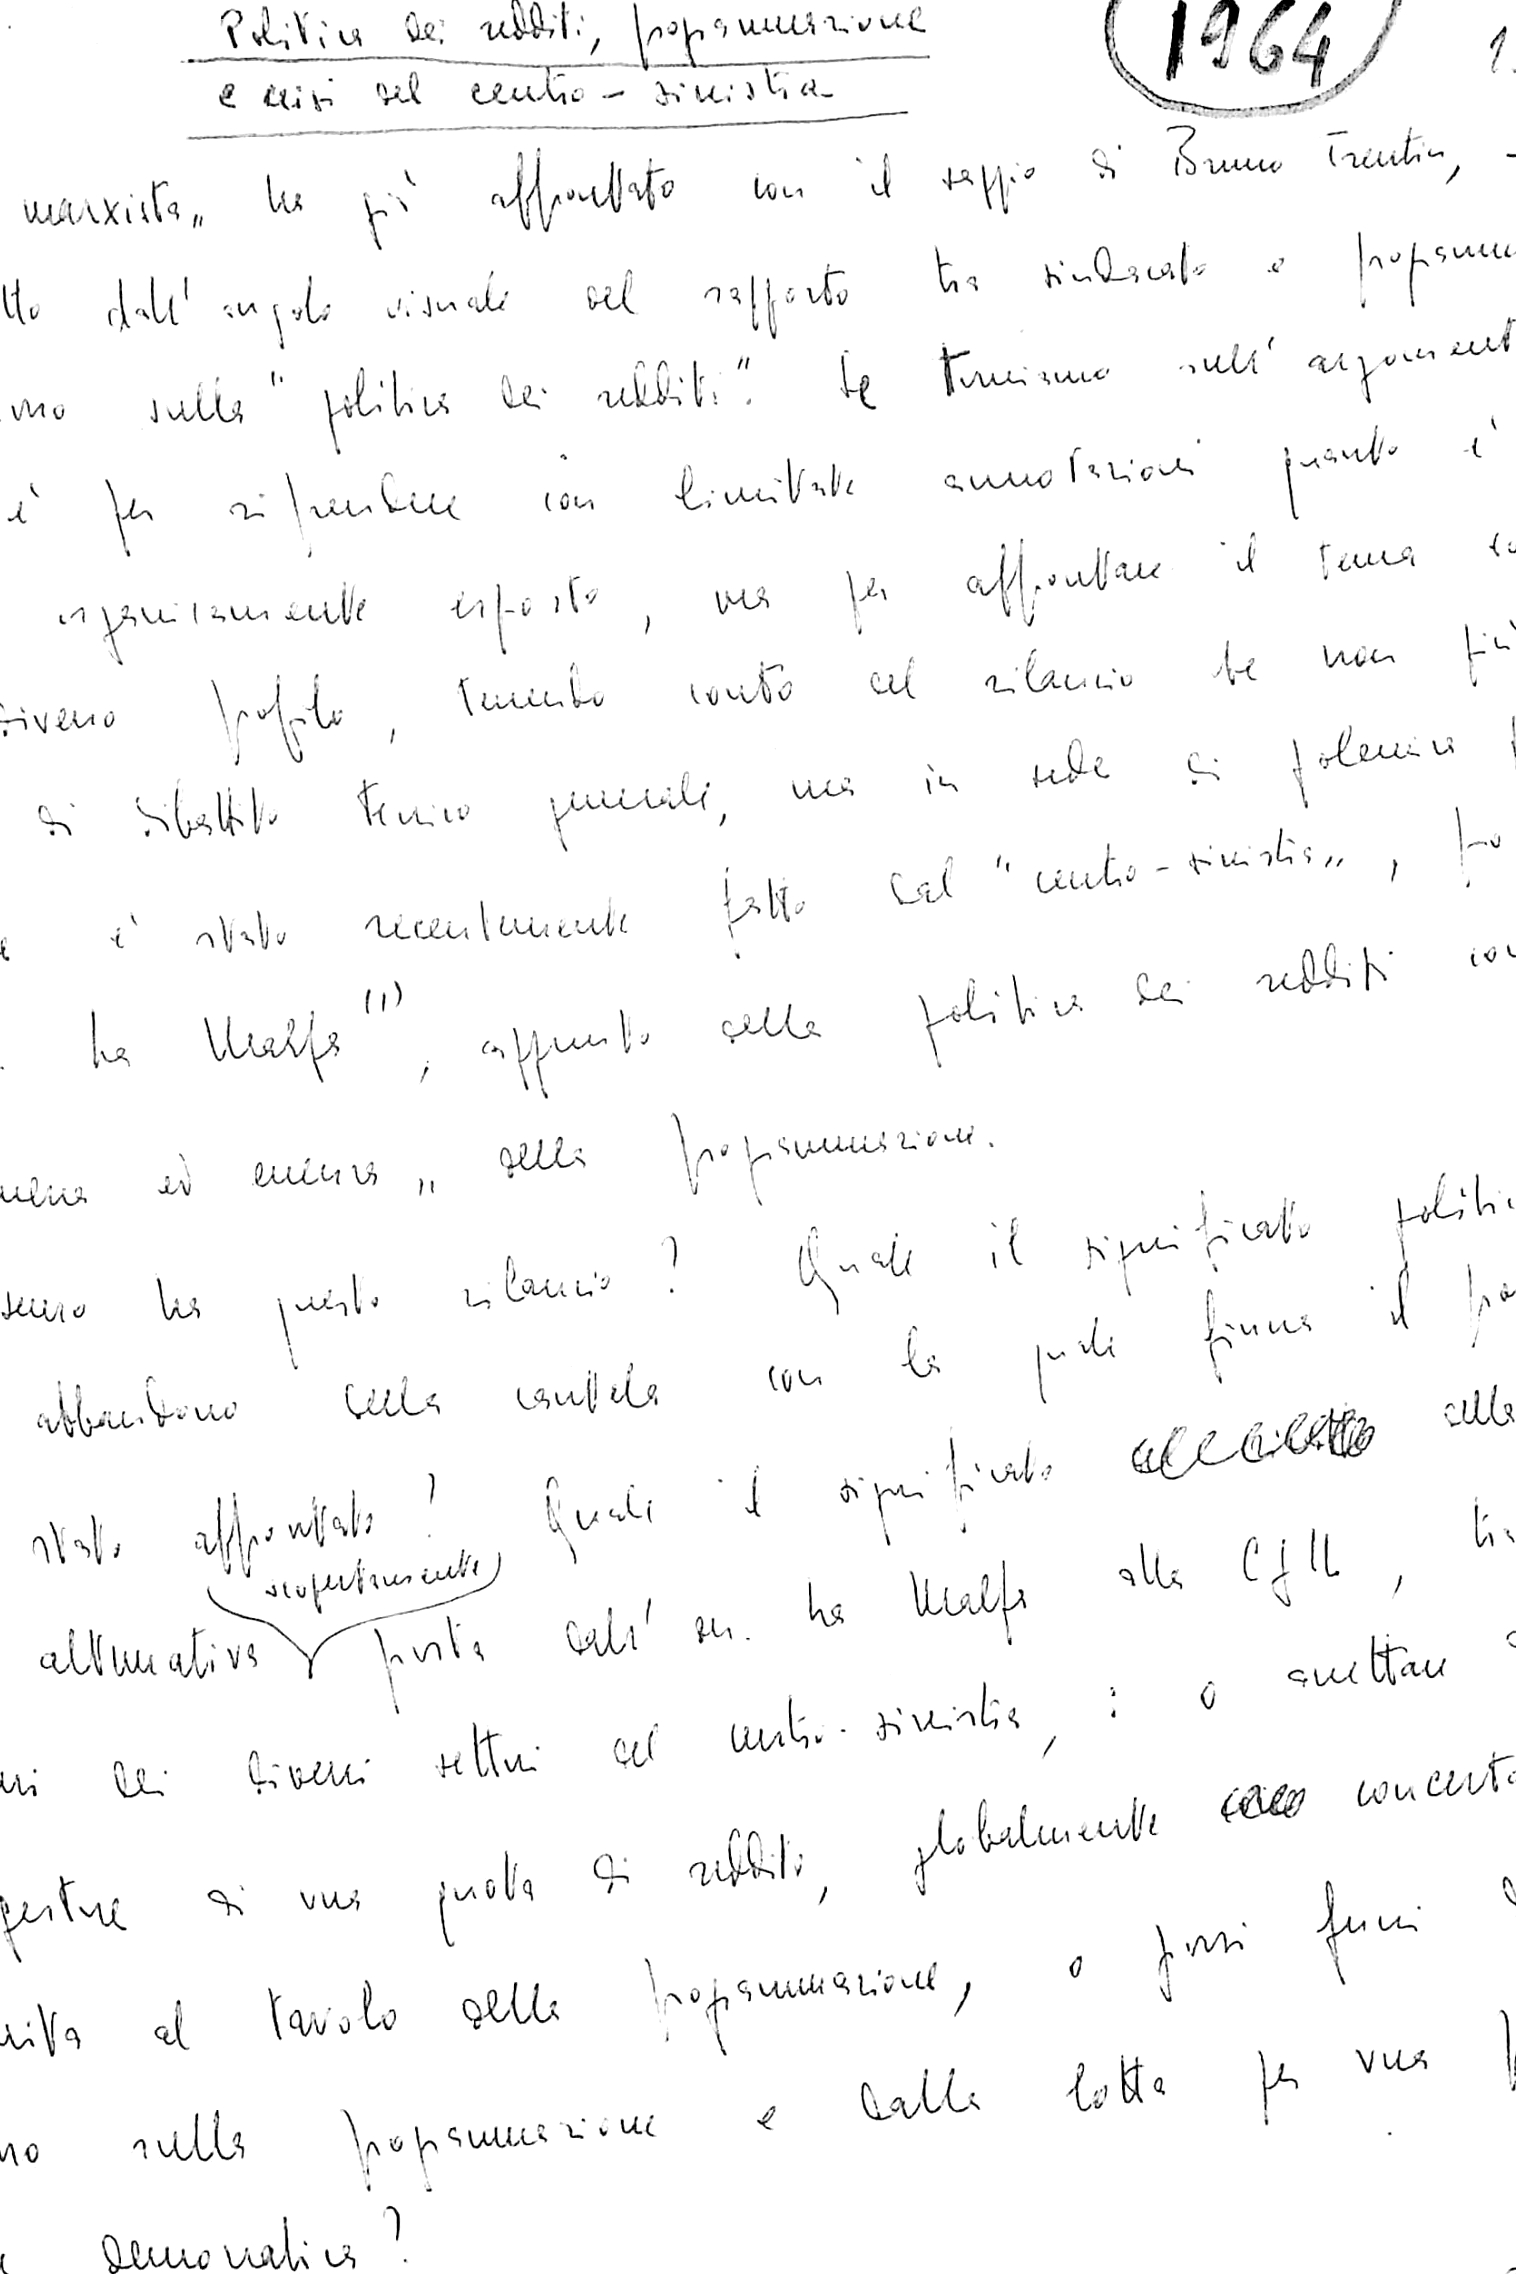 Politica dei redditi, programmazione
e crisi del centro-sinistra
1964
1.
marxista„ ha già affrontato con il saggio di Bruno Trentin, -
tto dall'angolo visuale del rapporto tra sindacato e programm
smo sulla "politica dei redditi". Se torniamo sull'argoment
è per riprendere con limitate annotazioni quanto è
organicamente esposto, ma per affrontare il tema so
diverso profilo, tenendo conto del rilancio se non più
di dibattito tecnico generale, ma in sede di polemica p
e è stato recentemente fatto dal "centro-sinistra„, po
La Malfa (1), appunto della politica dei redditi con
ed „ della programmazione.
senso ha questo rilancio? Quale il significato politic
abbandono della cautela con la quale finora il pro
stato affrontato? Quale il significato della
alternativa scopertamente posta dall'on. La Malfa alla CGIL, tra
dei diversi settori del centro-sinistra,: o accettare
gestore di una quota di reddito, globalmente concerta
nita al tavolo della programmazione, o porsi fuori d
sulla programmazione e dalla lotta per una p
e democratica?